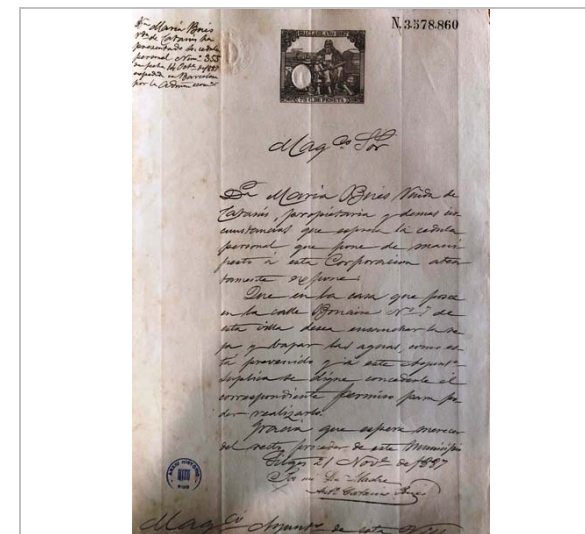 Dª María Bris
Vda de Catasús ha
presentado su cédula
personal Num.º 353
su fecha 14 Octe. de 1887
expedida en Barcelona
por la Admon
N. 3.578.860
75 C. DE PESETA
Magco Sor
Dª María Bris Viuda de
Catasús, propietaria y demas cir
cunstancias que espresa la cedula
personal que pone de mani
fiesto á esta Corporacion aten
tamente expone:
Que en la casa que posee
en la calle Bonaire Nº de
esta villa desea ensanchar la
y bajar las aguas, como es
tá prevenido y á este Ayuntº
Suplica se digne concederle el
correspondiente permiso para po
der realizarlo.
Gracia que espera merecer
del recto proceder de este Municipio
Sitges 21 Nove de 1887
Por mi Sra Madre
Antº Catasus Bris
Magco Ayuntº de esta Villa